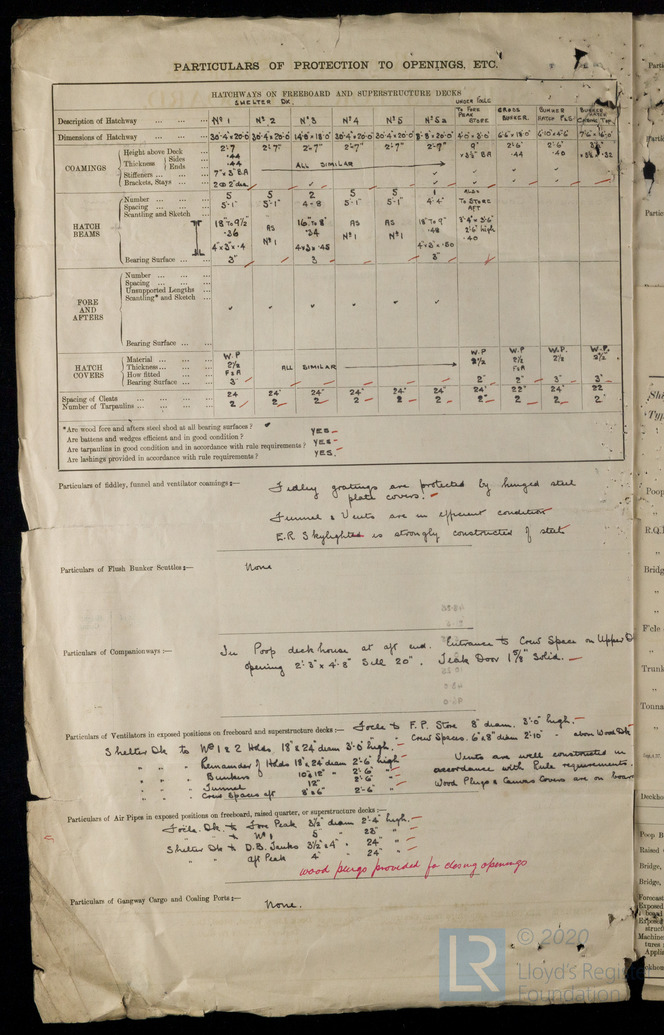 PARTICULARS OF PROTECTION TO OPENINGS, ETC.
HATCHWAYS ON FREEBOARD AND SUPERSTRUCTURE DECKS
SHELTER DK.
Description of Hatchway Nº 1 Nº 2 Nº 3 Nº 4 Nº 5 Nº 5a UNDER FOCLE TO FORE PEAK STORE CROSS BUNKER BUNKER HATCH P&S BUNKER HATCH
Dimensions of Hatchway 30'4"x20'0 30'4"x20'0 14'8"x18'0" 30'4"x20'0 30'4"x20'0 8'8"x20'0" 4'0"x3'0" 6'6"x18'0" 6'10"x4'6"
COAMINGS
Height above Deck 2'-7 2'-7" 2'-7" 2'-7" 2'-7" 2'-7" 9" 2'6" 2'6"
Thickness Sides .44 x3½" BA .44 .40
Ends .44 ALL SIMILAR
Stiffeners 7"x3" BA
Brackets, Stays
HATCH BEAMS
Number 5 5 2 5 5 1 ALSO
Spacing 5'-1" 5'-1" 4-8 5'-1" 5'-1" 4'-4" TO STORE AFT
Scantling and Sketch 18" to 9½" AS 16" to 8" AS AS 18" to 9" 3'-4"x3'-6"
.36 Nº 1 .34 Nº 1 Nº 1 .48 2'6" high
4"x3"x.4 4x3x.45 4"x3"x.50 .40
Bearing Surface 3" 3 3"
FORE AND AFTERS
Number
Spacing
Unsupported Lengths
Scantling* and Sketch
Bearing Surface
HATCH COVERS
Material W.P W.P W.P W.P. W.P.
Thickness 2½ ALL SIMILAR 2½ 2½ 2½ 2½"
How fitted F&A F&A
Bearing Surface 3" 2" 2" 3" 3"
Spacing of Cleats 24 24" 24" 24" 24" 24" 24" 22" 24" 22
Number of Tarpaulins 2 2 2 2 2 2 2 2 2 2
*Are wood fore and afters steel shod at all bearing surfaces?
Are battens and wedges efficient and in good condition? YES
Are tarpaulins in good condition and in accordance with rule requirements? YES
Are lashings provided in accordance with rule requirements? YES
Particulars of fiddley, funnel and ventilator coamings:— Fidley gratings are protected by hinged steel
plate covers.
Funnel & Vents are in efficient condition
E.R Skylighted is strongly constructed of steel
Particulars of Flush Bunker Scuttles:— None
Particulars of Companionways:— In Poop deck house at aft end. Entrance to Crew Space on Upper D
opening 2'3" x 4'8" Sill 20". Teak Door 1⅝" Solid.
Particulars of Ventilators in exposed positions on freeboard and superstructure decks:— Focle to F.P. Store 8" diam. 3'-0" high.
" Crew Spaces. 6"x8" diam 2'10" " above Wood Dk
Shelter Dk to Nº 1 & 2 Holds. 18"x24" diam 3'0" high.
" " " Remainder of Holds 18"x24" diam 2'-6" high
" " " Bunkers 10"x12" " 2'6" "
" " " Tunnel 12" " 2'6" "
" " Crew Spaces aft 8"x6" 2'-6" "
Vents are well constructed in
accordance with Rule requirements.
Wood Plugs & Canvas Covers are on board
Particulars of Air Pipes in exposed positions on freeboard, raised quarter, or superstructure decks:—
Focle. Dk to Fore Peak 3½" diam 2'-4" high.
" " " Nº 1 5" " 28" "
Shelter Dk to D.B. Tanks 3½"x4" " 24" "
" " aft Peak 4" " 24" "
wood plugs provided for closing openings
Particulars of Gangway Cargo and Coaling Ports:— None.
© 2020
Lloyd's Register
Foundation
LR